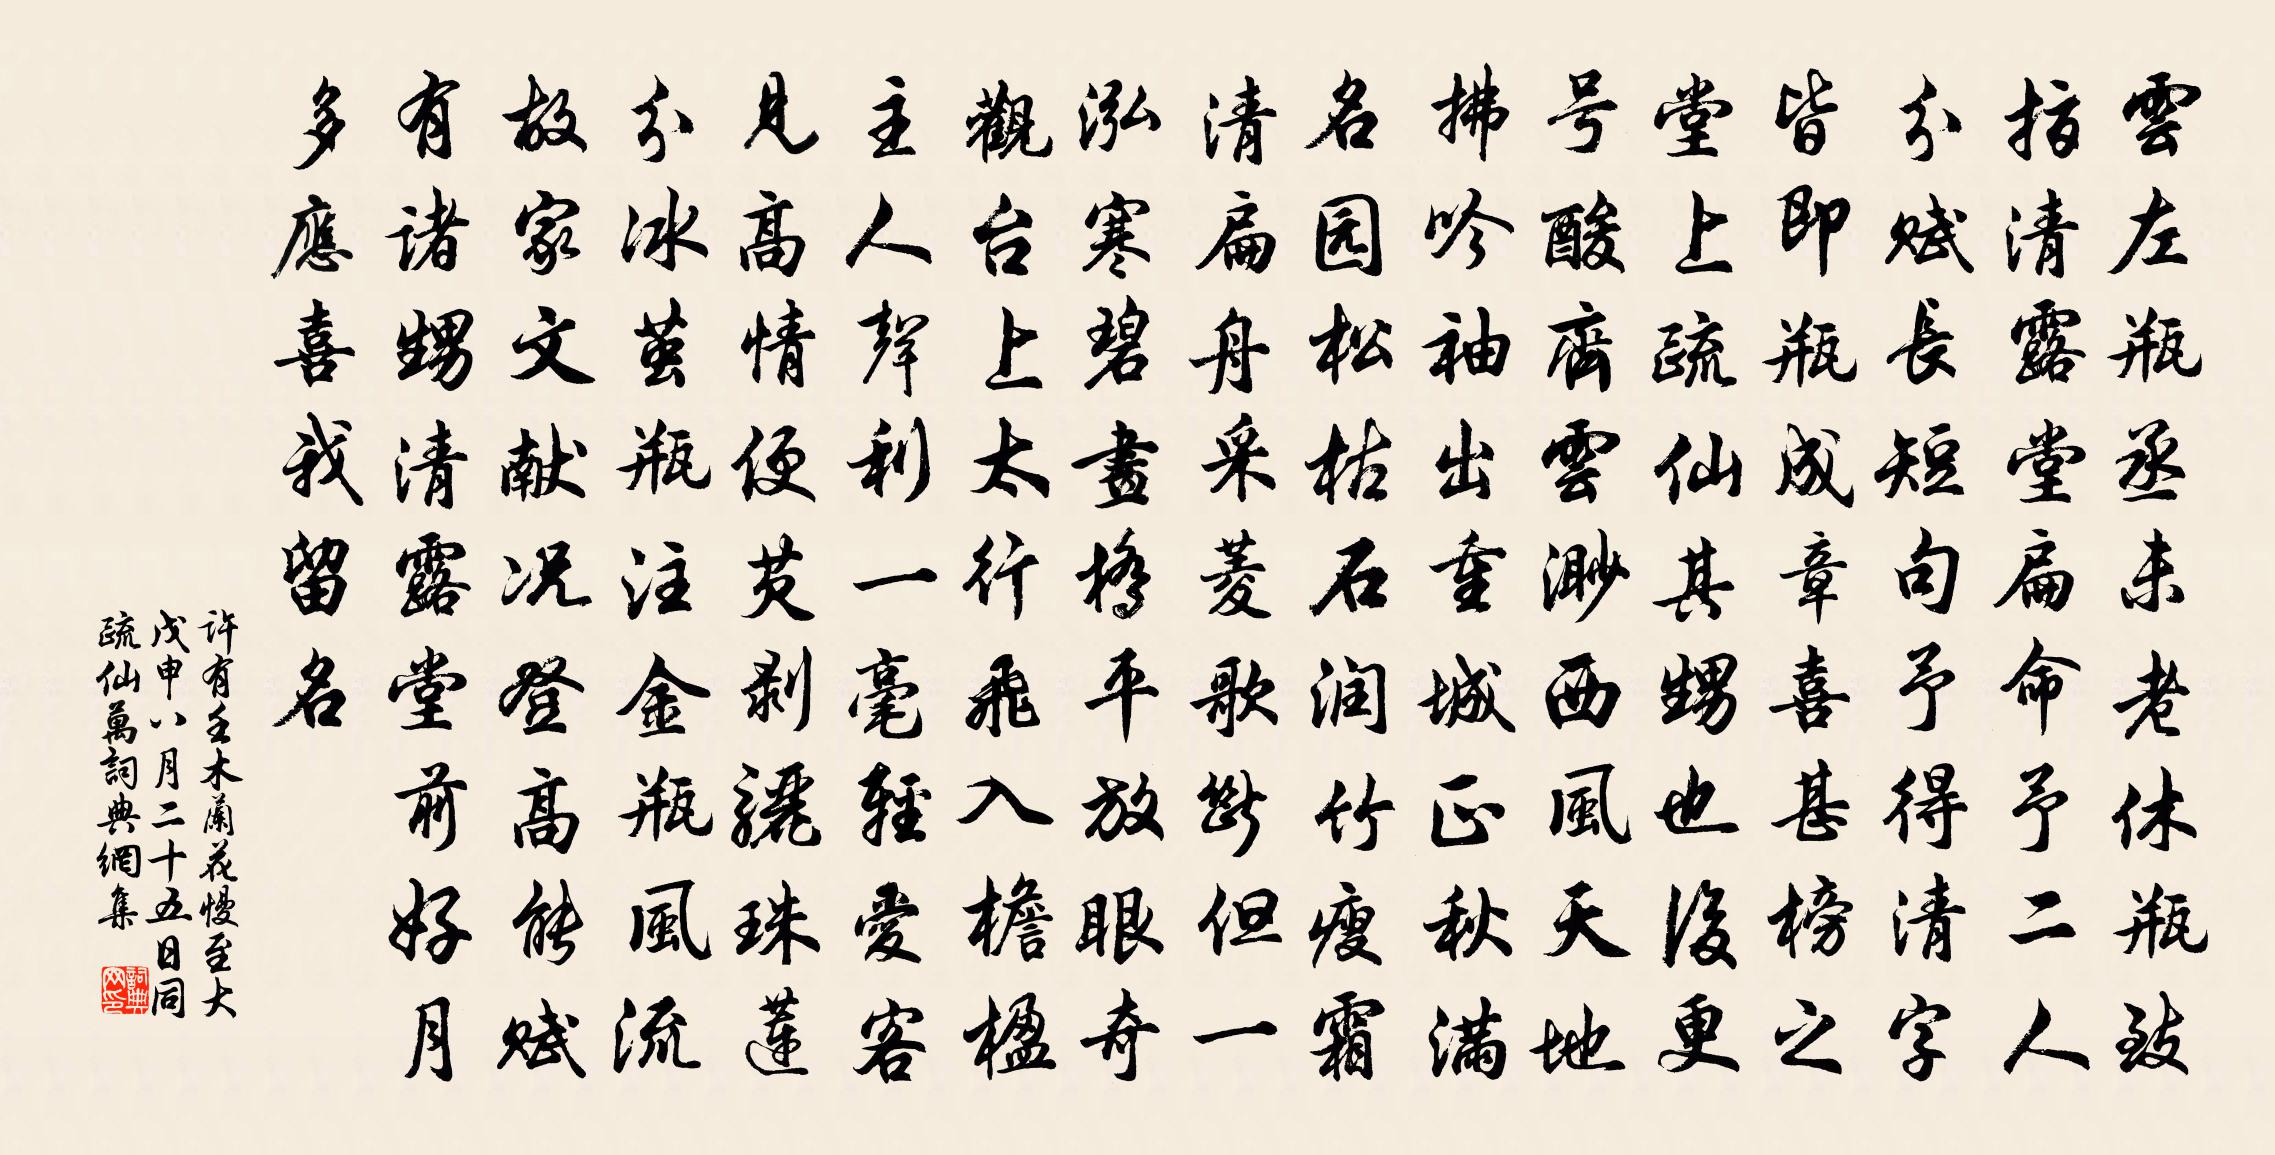 雲左瓶丞未老休瓶致
指清露堂扁命予二人
分赋長短句予得清字
皆即瓶成章喜甚榜之
堂上疏仙其甥也後更
号酸齋雲渺西風天地
拂吟袖出重城正秋满
名园松枯石润竹瘦霜
清扁舟采菱歌斷但一
泓寒碧畫橋平放眼奇
觀台上太行飛入檐楹
主人聲利一毫輕愛客
見高情便芡剥驪珠蓮
分冰茧瓶注金瓶風流
故家文献况登高能赋
有諸甥清露堂前好月
多應喜我留名
许有壬木蘭花慢至大
戊申八月二十五日同
疏仙萬詞典網集
詞典网印